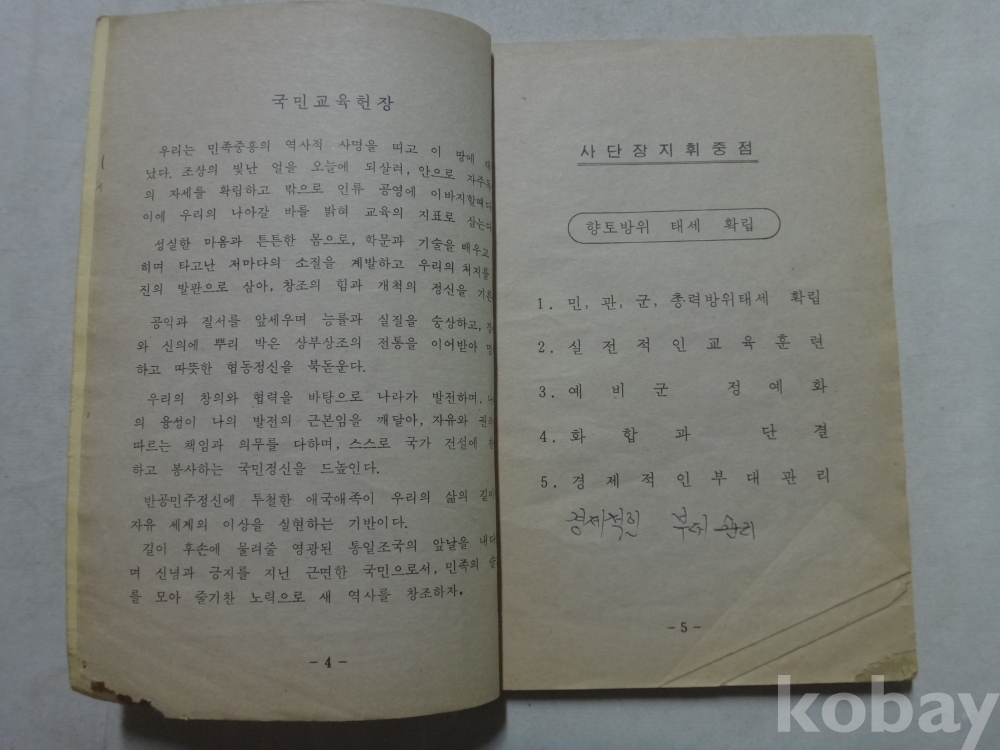 국민교육헌장
우리는 민족중흥의 역사적 사명을 띠고 이 땅에
났다. 조상의 빛난 얼을 오늘에 되살려, 안으로 자주
의 자세를 확립하고 밖으로 인류 공영에 이바지할때다
이에 우리의 나아갈 바를 밝혀 교육의 지표로 삼는다
성실한 마음과 튼튼한 몸으로, 학문과 기술을 배우고
히며 타고난 저마다의 소질을 계발하고 우리의 처지를
진의 발판으로 삼아, 창조의 힘과 개척의 정신을 기른
공익과 질서를 앞세우며 능률과 실질을 숭상하고,
와 신의에 뿌리 박은 상부상조의 전통을 이어받아
하고 따뜻한 협동정신을 북돋운다.
우리의 창의와 협력을 바탕으로 나라가 발전하며,
의 융성이 나의 발전의 근본임을 깨달아, 자유와
따르는 책임과 의무를 다하며, 스스로 국가 건설에
하고 봉사하는 국민정신을 드높인다.
반공민주정신에 투철한 애국애족이 우리의 삶의 길이
자유 세계의 이상을 실현하는 기반이다.
길이 후손에 물려줄 영광된 통일조국의 앞날을 내다
며 신념과 긍지를 지닌 근면한 국민으로서, 민족의 슬
를 모아 줄기찬 노력으로 새 역사를 창조하자.
- 4 -
사단장지휘중점
향토방위 태세 확립
1. 민, 관, 군, 총력방위태세 확립
2. 실전적인교육훈련
3. 예비군 정예화
4. 화합과 단결
5. 경제적인부대관리
경제적인 부대 관리
- 5 -
kobay